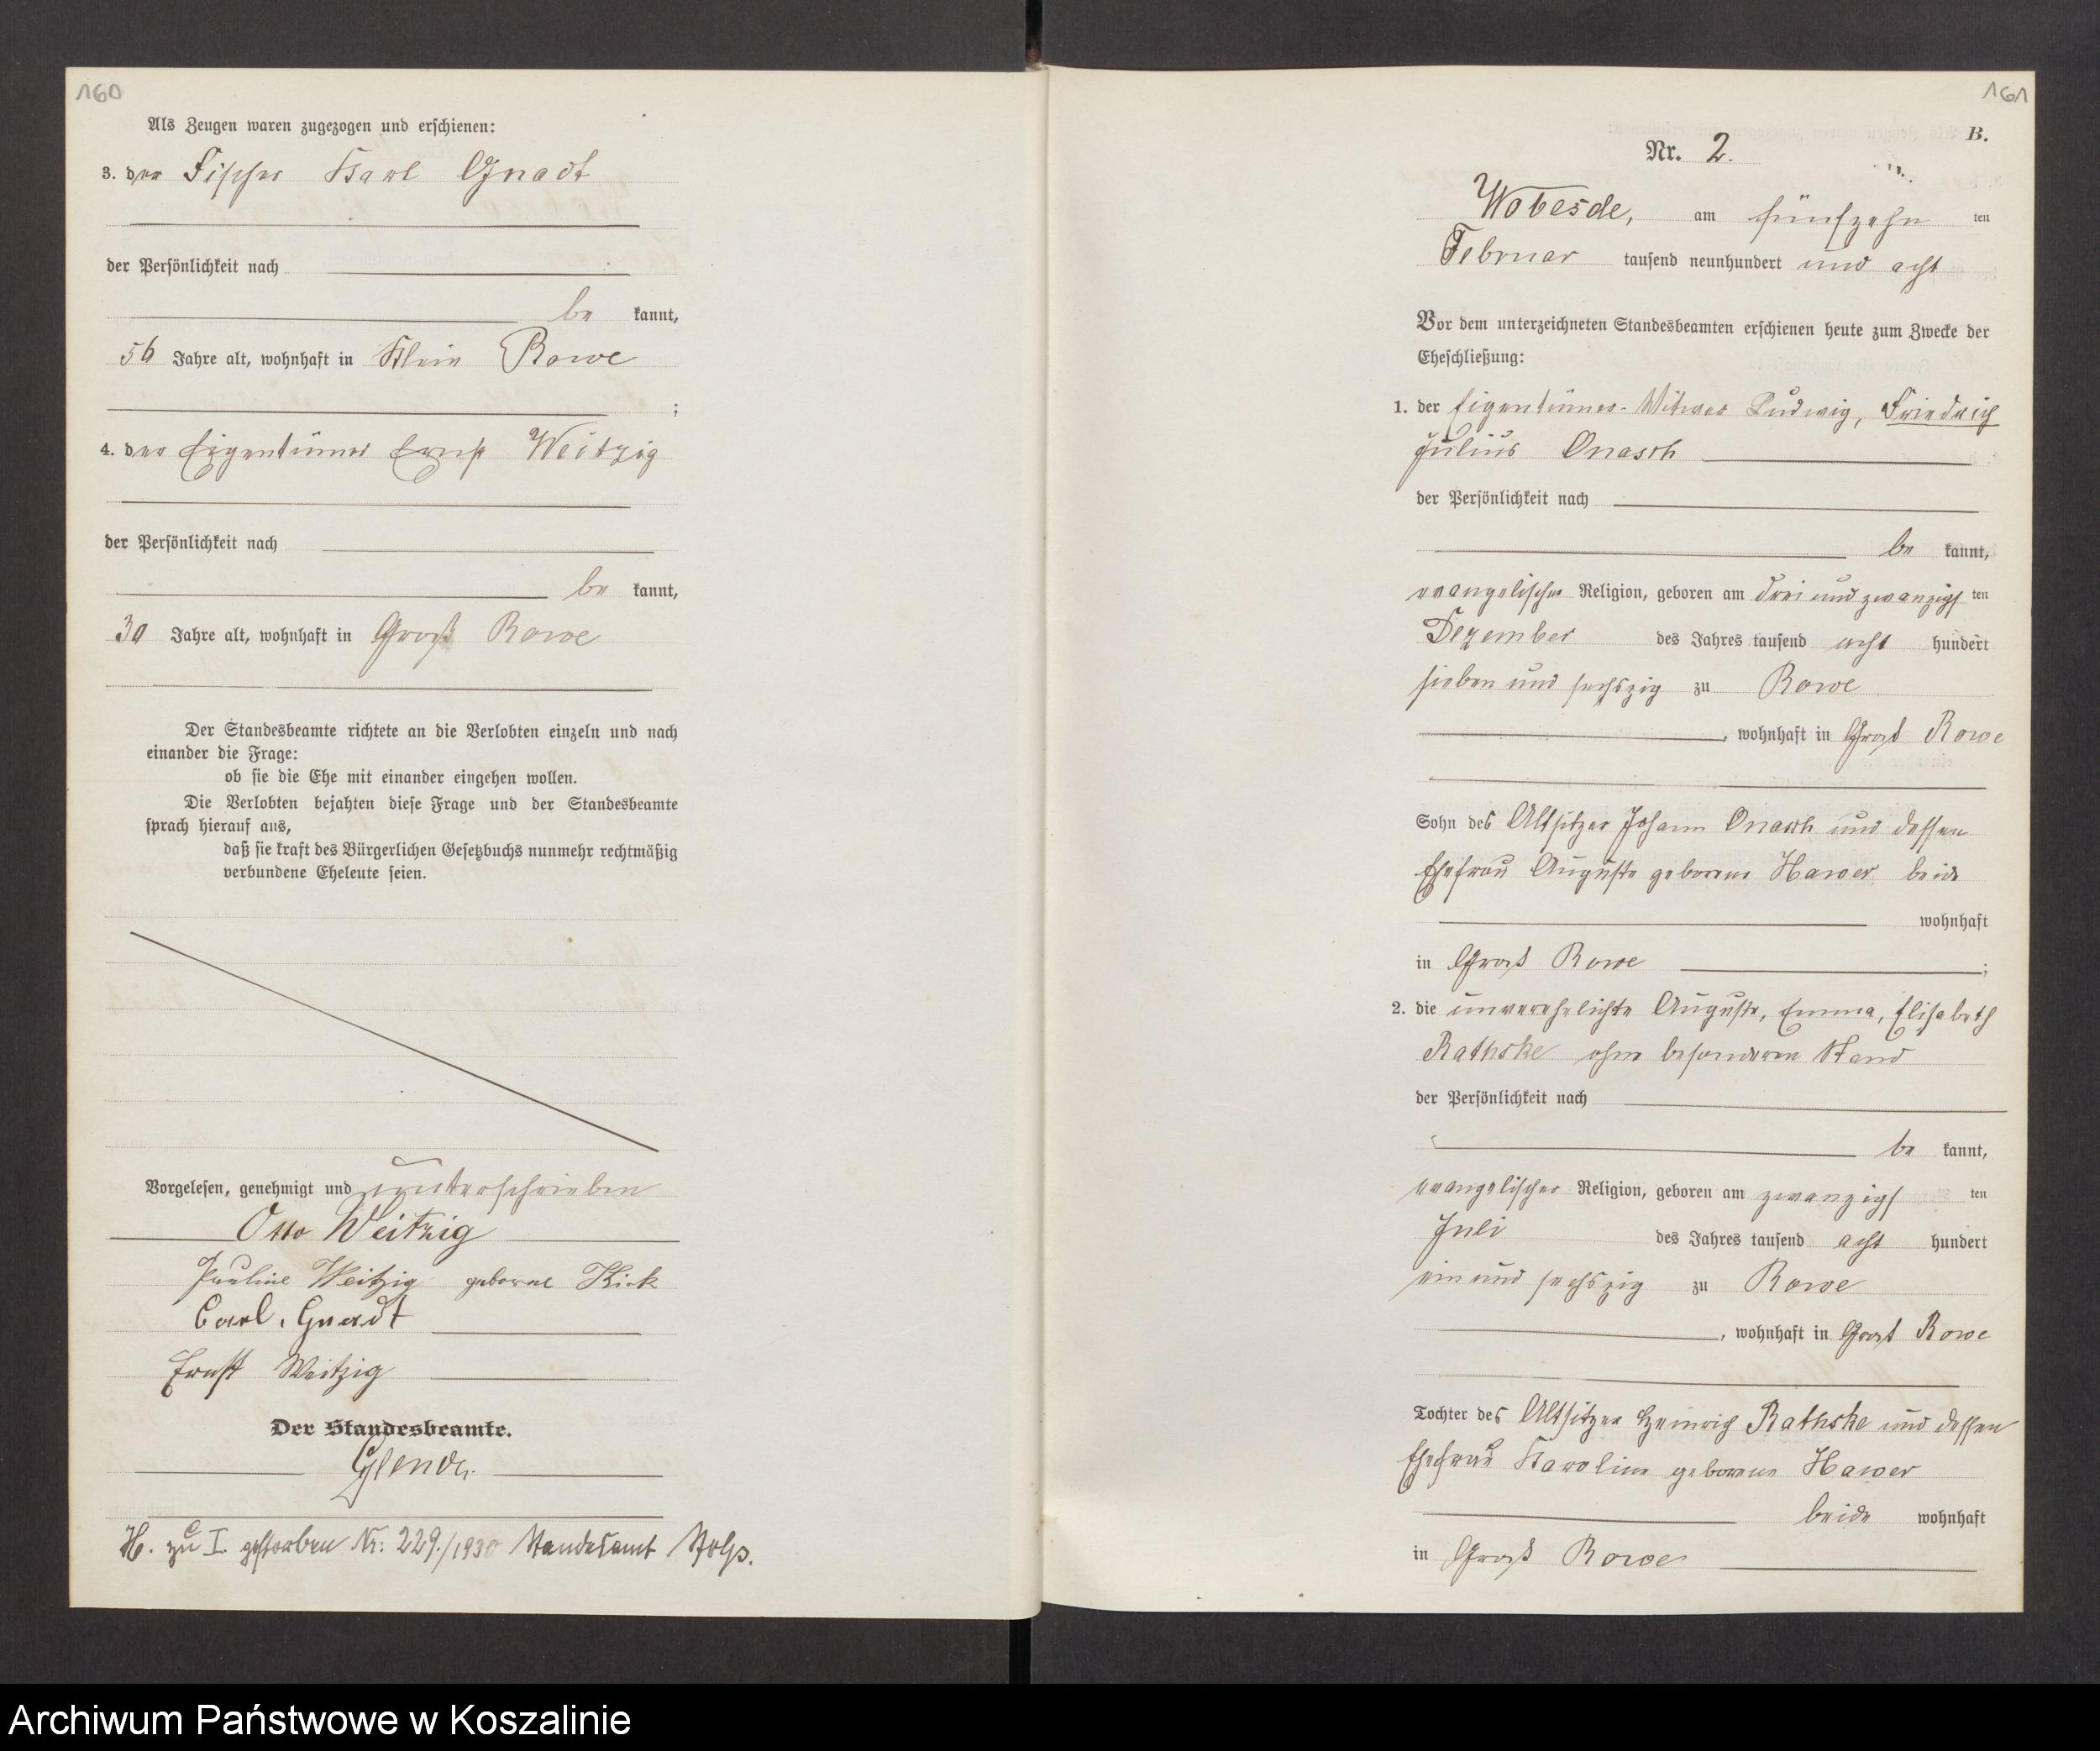 160
Als Zeugen waren zugezogen und erschienen:
3. der Fischer Karl Gnadt
der Persönlichkeit nach
be kannt,
56 Jahre alt, wohnhaft in Klein Rowe
;
4. der Eigentümer Ernst Weitzig
der Persönlichkeit nach
be kannt,
30 Jahre alt, wohnhaft in Groß Rowe
Der Standesbeamte richtete an die Verlobten einzeln und nach
einander die Frage:
ob sie die Ehe mit einander eingehen wollen.
Die Verlobten bejahten diese Frage und der Standesbeamte
sprach hierauf aus,
daß sie kraft des Bürgerlichen Gesetzbuchs nunmehr rechtmäßig
verbundene Eheleute seien.
Vorgelesen, genehmigt und unterschrieben
Otto Weitzig
Pauline Weitzig geborne Kick
Carl. Gnadt
Ernst Weitzig
Der Standesbeamte.
H. zu I. gestorben Nr: 229./1930 Standesamt Stolp.
161
B.
Nr. 2.
Wobesde, am fünfzehn ten
Februar tausend neunhundert und acht
Vor dem unterzeichneten Standesbeamten erschienen heute zum Zwecke der
Eheschließung:
1. der Eigentümer-Witwer Ludwig, Friedrich
Julius Onasch
der Persönlichkeit nach
be kannt,
evangelischer Religion, geboren am drei und zwanzigs ten
Dezember des Jahres tausend acht hundert
sieben und sechszig zu Rowe
, wohnhaft in Groß Rowe
Sohn des Altsitzer Johann Onasch und dessen
Ehefrau Auguste geborene Hawer beide
wohnhaft
in Groß Rowe ;
2. die unverehelichte Auguste, Emma, Elisabeth
Rathske ohne besonderen Stand
der Persönlichkeit nach
be kannt,
evangelischer Religion, geboren am zwanzigs ten
Juli des Jahres tausend acht hundert
ein und sechszig zu Rowe
, wohnhaft in Groß Rowe
Tochter des Altsitzer Heinrich Rathske und dessen
Ehefrau Karoline geborene Hawer
beide wohnhaft
in Groß Rowe
Archiwum Państwowe w Koszalinie